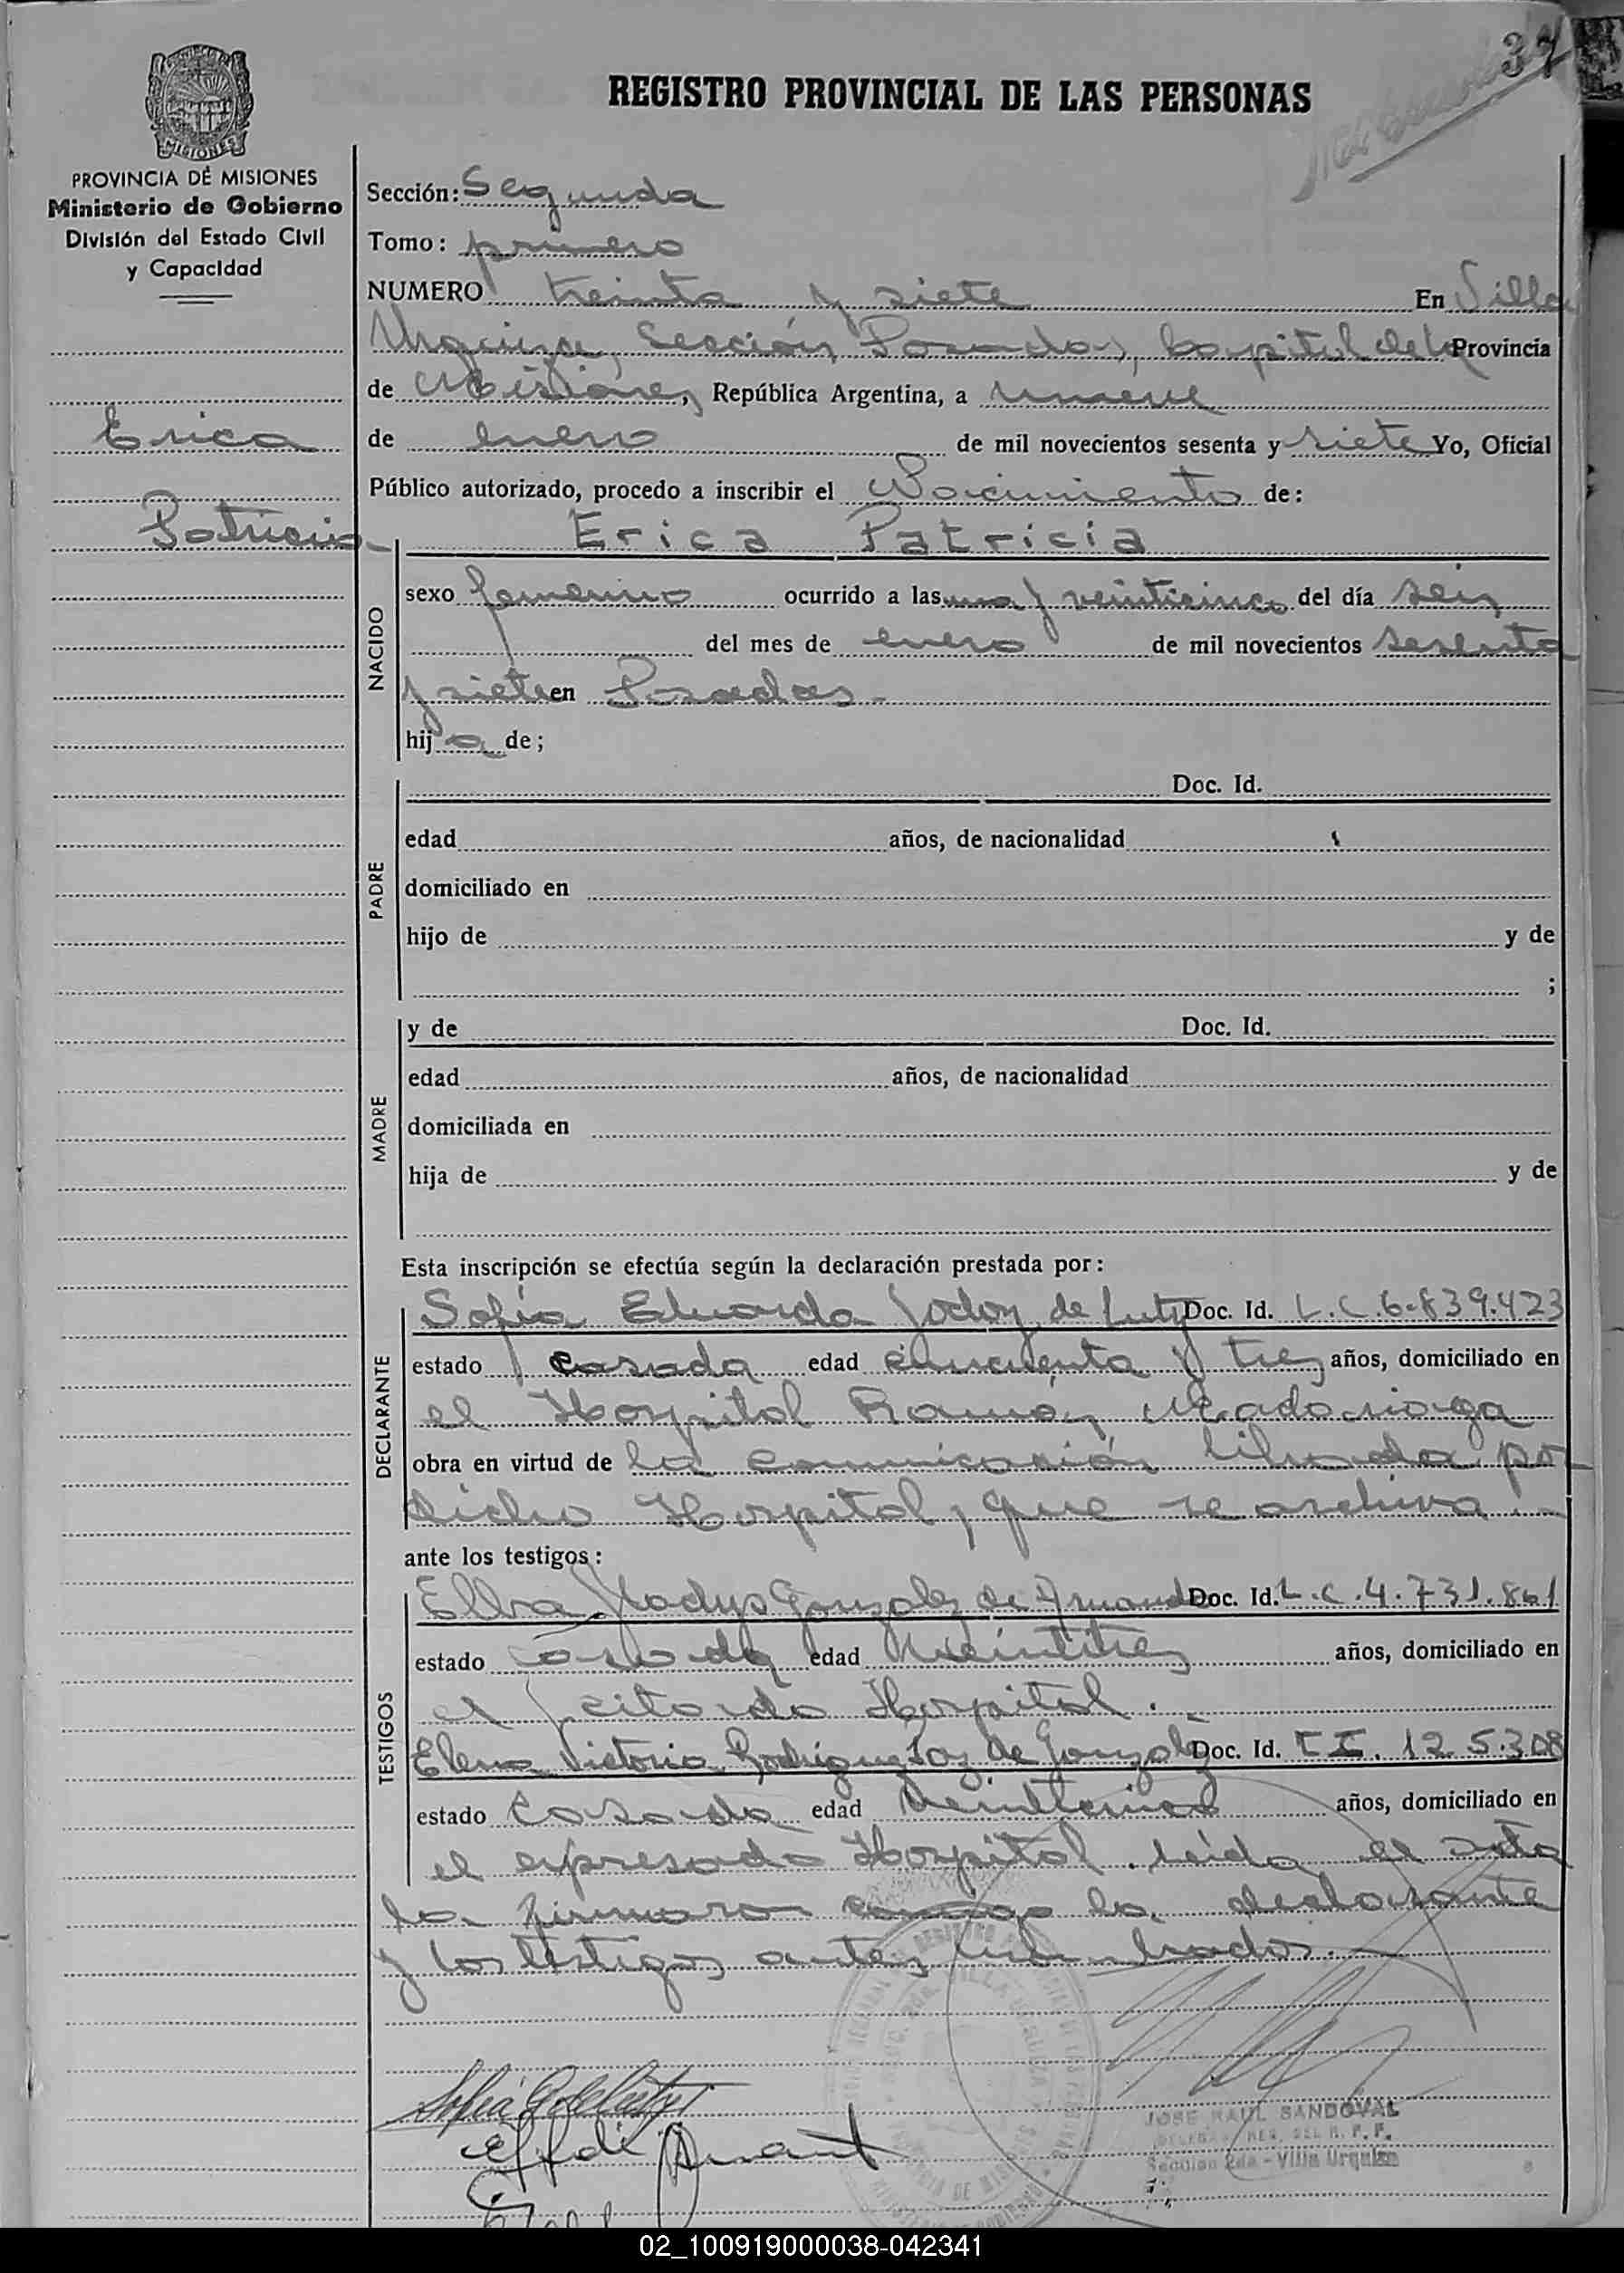 37
REGISTRO PROVINCIAL DE LAS PERSONAS
MISIONES
PROVINCIA DE MISIONES
Ministerio de Gobierno
División del Estado Civil
y Capacidad
Sección: Segunda
Tomo: primero
NUMERO treinta y siete En Villa
Urquiza, Sección Posadas, Capital de la Provincia
de Misiones, República Argentina, a nueve
Erica
de enero de mil novecientos sesenta y siete Yo, Oficial
Público autorizado, procedo a inscribir el Nacimiento de:
Patricia
Erica Patricia
NACIDO
sexo femenino ocurrido a las una y veinticinco del día seis
del mes de enero de mil novecientos sesenta
y siete en Posadas.-
hija de;
PADRE
Doc. Id.
edad años, de nacionalidad
domiciliado en
hijo de y de
;
MADRE
y de Doc. Id.
edad años, de nacionalidad
domiciliada en
hija de y de
Esta inscripción se efectúa según la declaración prestada por:
DECLARANTE
Sofía Eduarda Godoy de Doc. Id. L.C. 6.839.423
estado casada edad cincuenta y tres años, domiciliado en
el Hospital Ramón Madariaga
obra en virtud de la comunicación librada por
dicho Hospital, que se archiva
ante los testigos:
TESTIGOS
Elba Gladys Gonzalez de Doc. Id. L.C. 4.731.861
estado casada edad veintitres años, domiciliado en
el citado Hospital.-
Elena Victoria de Gonzalez Doc. Id. C.I. 125.308
estado casada edad años, domiciliado en
el expresado Hospital. leída el acta
la firmaron la declarante
y los testigos antes
JOSE RAUL SANDOVAL
Sección 2da - Villa Urquiza
02_100919000038-042341